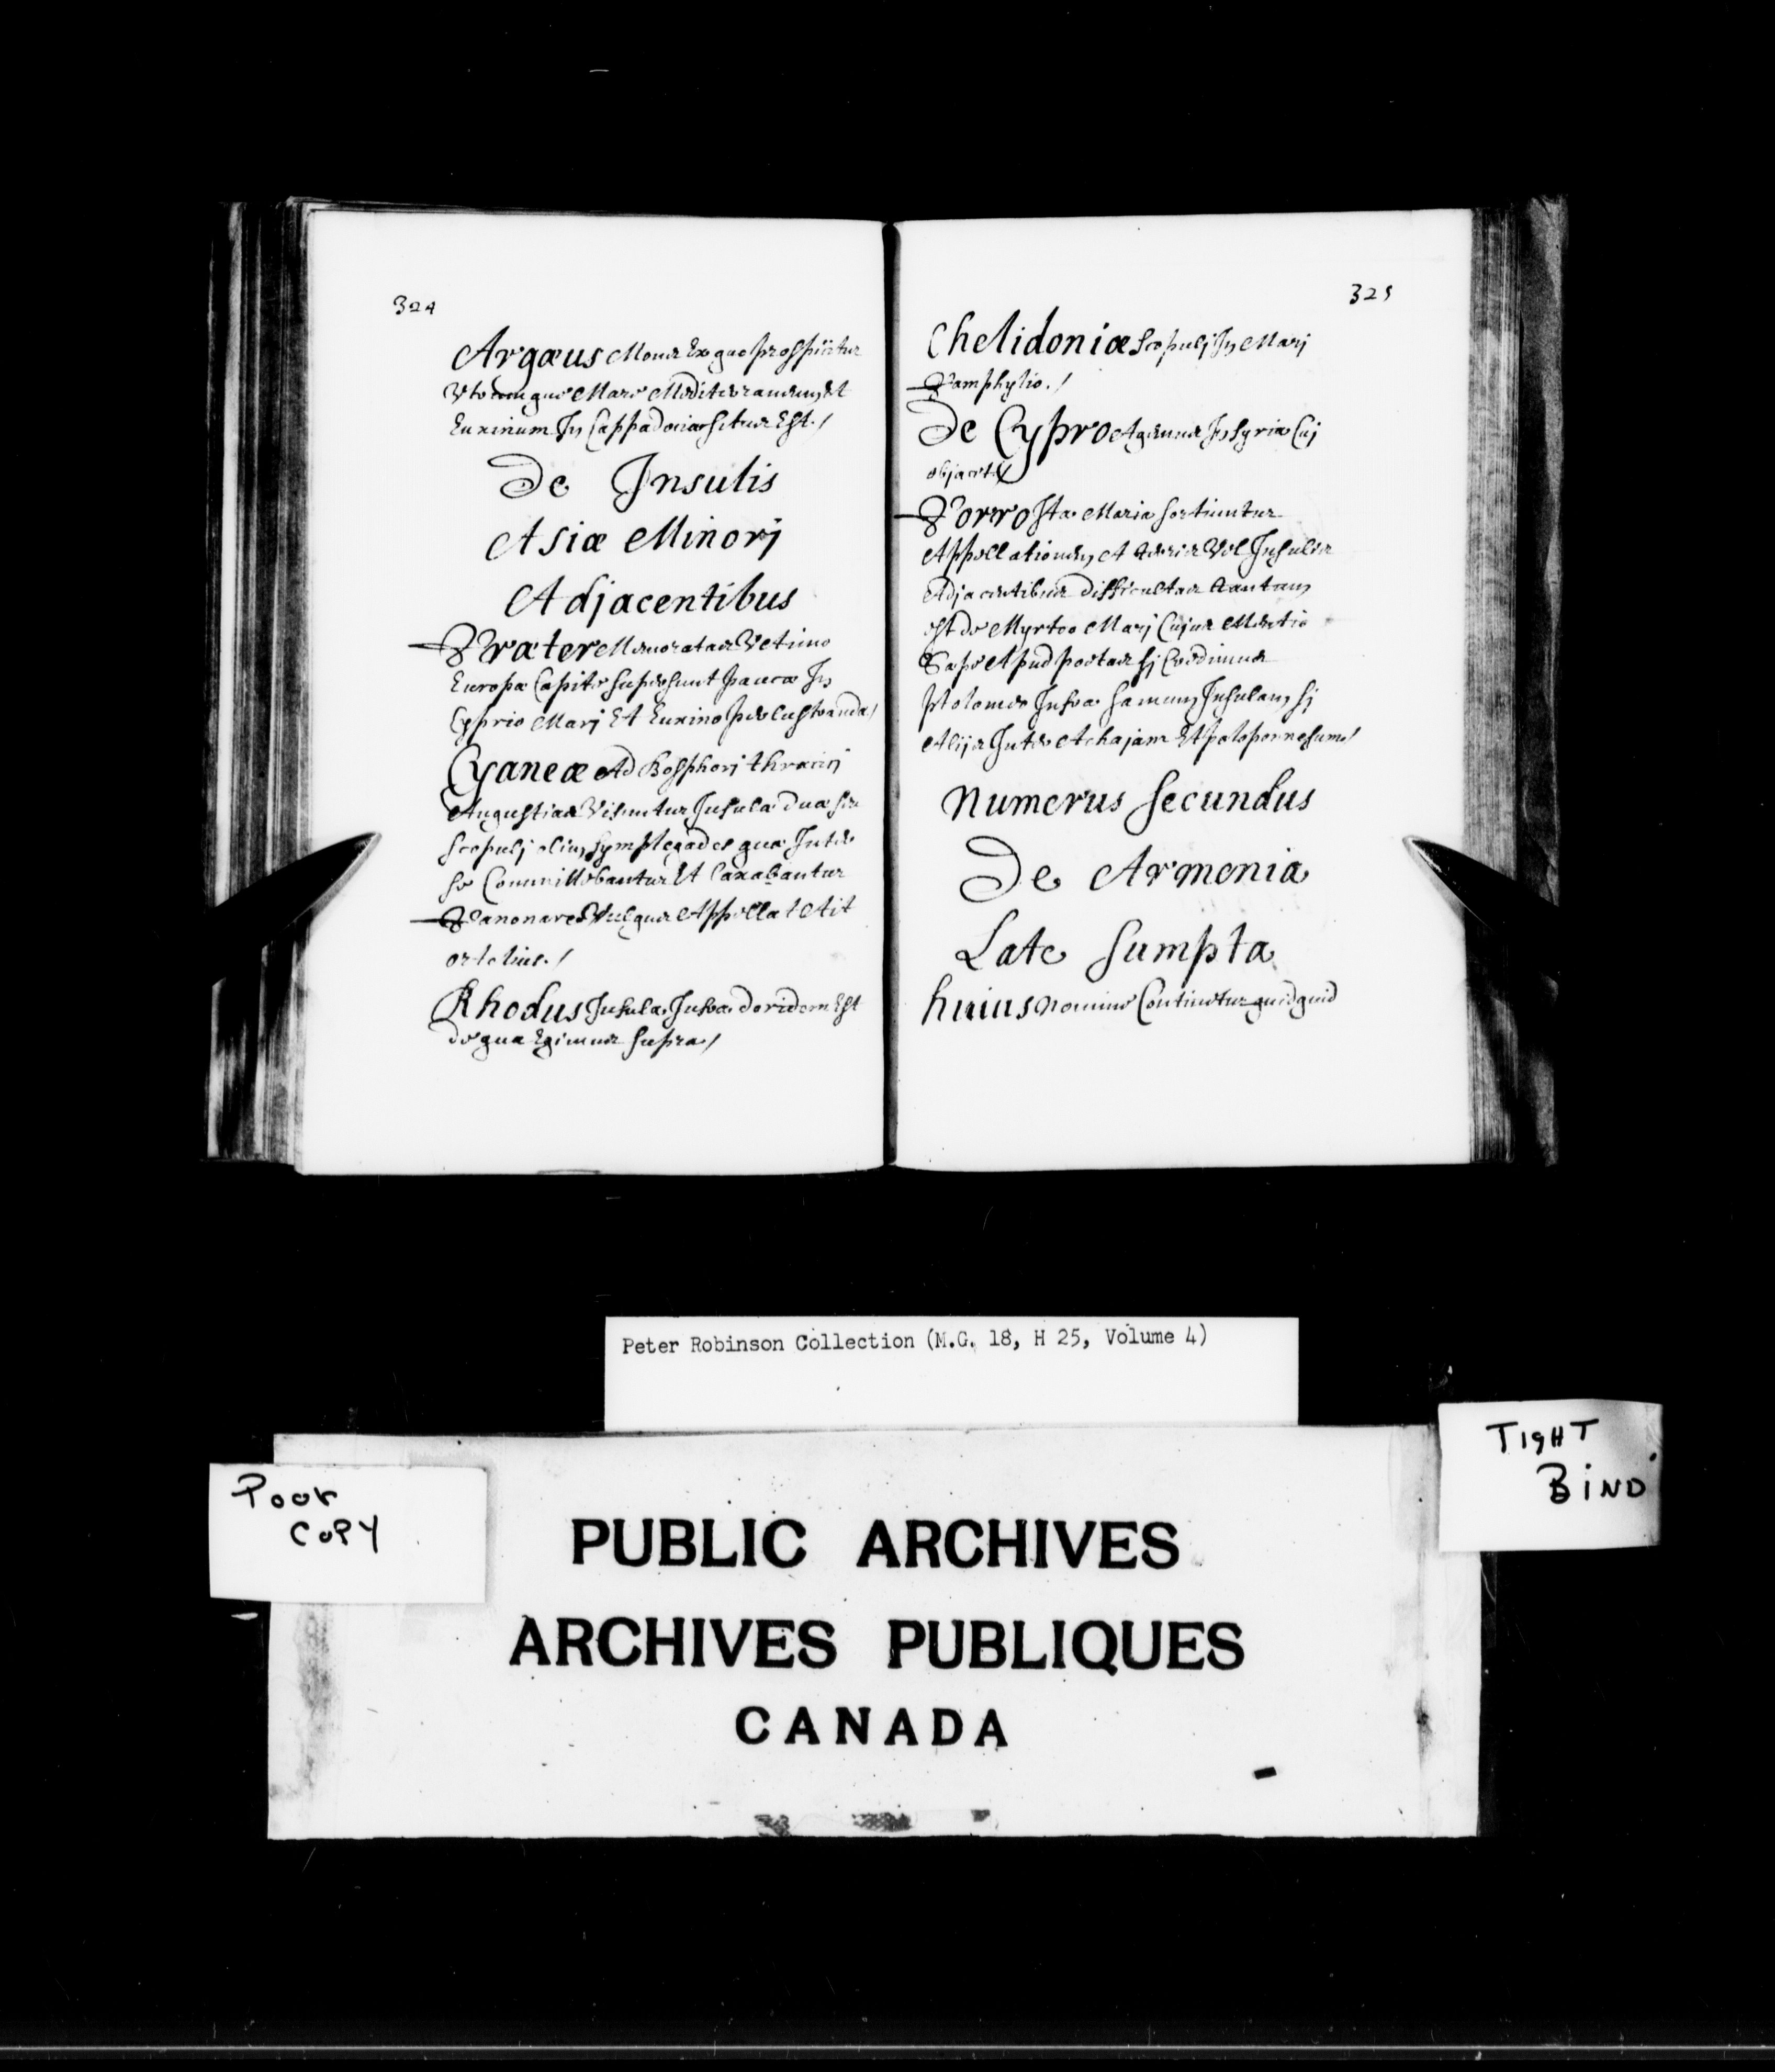 324
Argæus Mons Ex quo prospicitur
Utrumque Mare Mediterraneum Et
Euxinum In Cappadocia situs Est./
De Insulis
Asiæ Minorj
Adjacentibus
Præter Memoratas Ultimo
Europæ Capite supersunt paucæ In
Cyprio Marj Et Euxino perlustranda/
Cyaneæ Ad Bosphorj thracij
Angustias Visuntur Insulæ duæ seu
scopulj olim symplegades quæ Inter
se Committebantur Et laxabantur
Panonares Vulgus Appellat Ait
ortelius./
Rhodus Insula Juxta doridem Est
de qua Egimus supra/
325
Chelidoniæ scopulj In Marj
Pamphylio./
De Cypro Agemus In syria Cuj
objacet
Porro Ista Maria sortiuntur
Appellationem A terris Vel Insulis
Adjacentibus difficultas tantum
est de Myrtoo Marj Cujus Mentio
Sæpe Apud poetas sj Credimus
ptolomeo Juxta samum Insulam sj
Alijs Inter Achajam Et peloponnesum/
Numerus secundus
De Armenia
Late sumpta
huius nomine Continetur quidquid
Peter Robinson Collection (M.G. 18, H 25, Volume 4)
Poor
Copy
TIGHT
BIND
PUBLIC ARCHIVES
ARCHIVES PUBLIQUES
CANADA